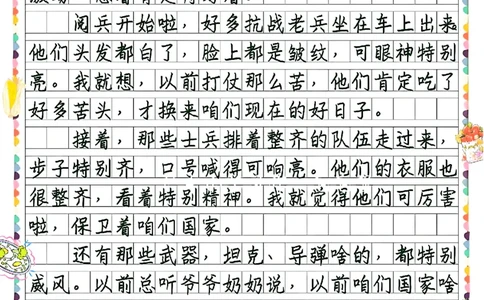 阅兵开始啦，好多抗战老兵坐在车上出来
他们头发都白了，脸上都是皱纹，可眼神特别
亮。我就想，以前打仗那么苦，他们肯定吃了
好多苦头，才换来咱们现在的好日子。
接着，那些士兵排着整齐的队伍走过来，
步子特别齐，口号喊得可响亮。他们的衣服也
很整齐，看着特别精神。我就觉得他们可厉害
啦，保卫着咱们国家。
还有那些武器，坦克、导弹啥的，都特别
威风。以前总听爷爷奶奶说，以前咱们国家啥